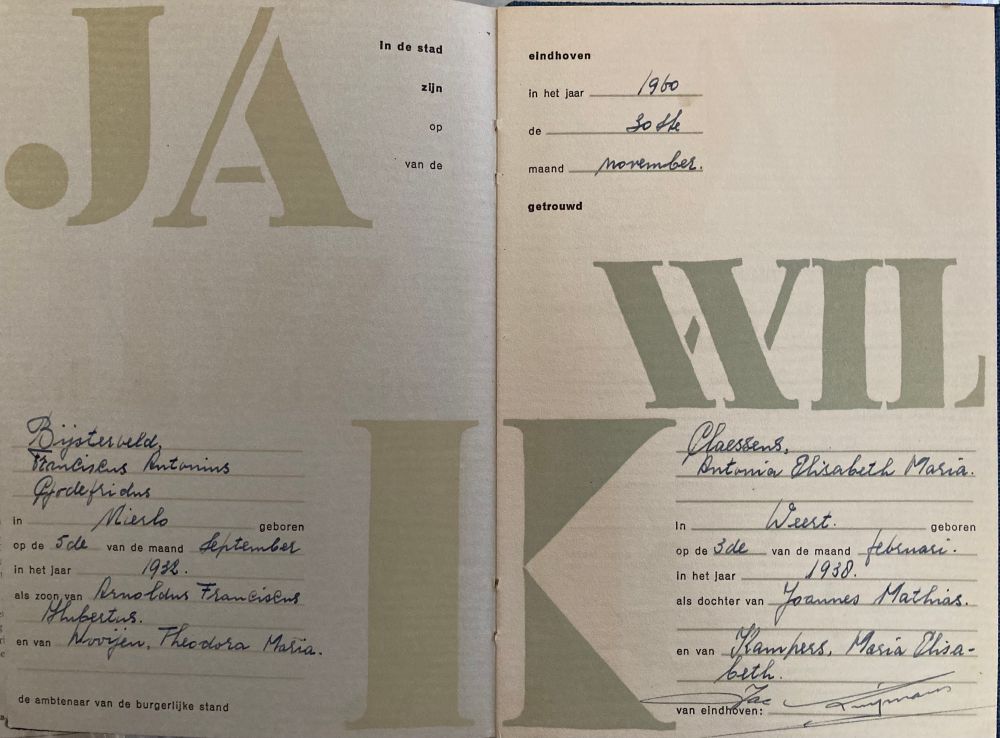 JA
In de stad
zijn
op
van de
eindhoven
in het jaar 1960
de 30ste
maand november.
getrouwd
WIL
IK
Bijsterveld,
Franciscus Antonius
Godefridus
in Mierlo geboren
op de 5de van de maand September
in het jaar 1932.
als zoon van Arnoldus Franciscus
Hubertus.
en van Rooijen, Theodora Maria.
de ambtenaar van de burgerlijke stand
Claessens,
Antonia Elisabeth Maria.
In Weert. geboren
op de 3de van de maand februari.
in het jaar 1938.
als dochter van Joannes Mathias.
en van Kampers, Maria Elisa-
beth.
van eindhoven: Jac